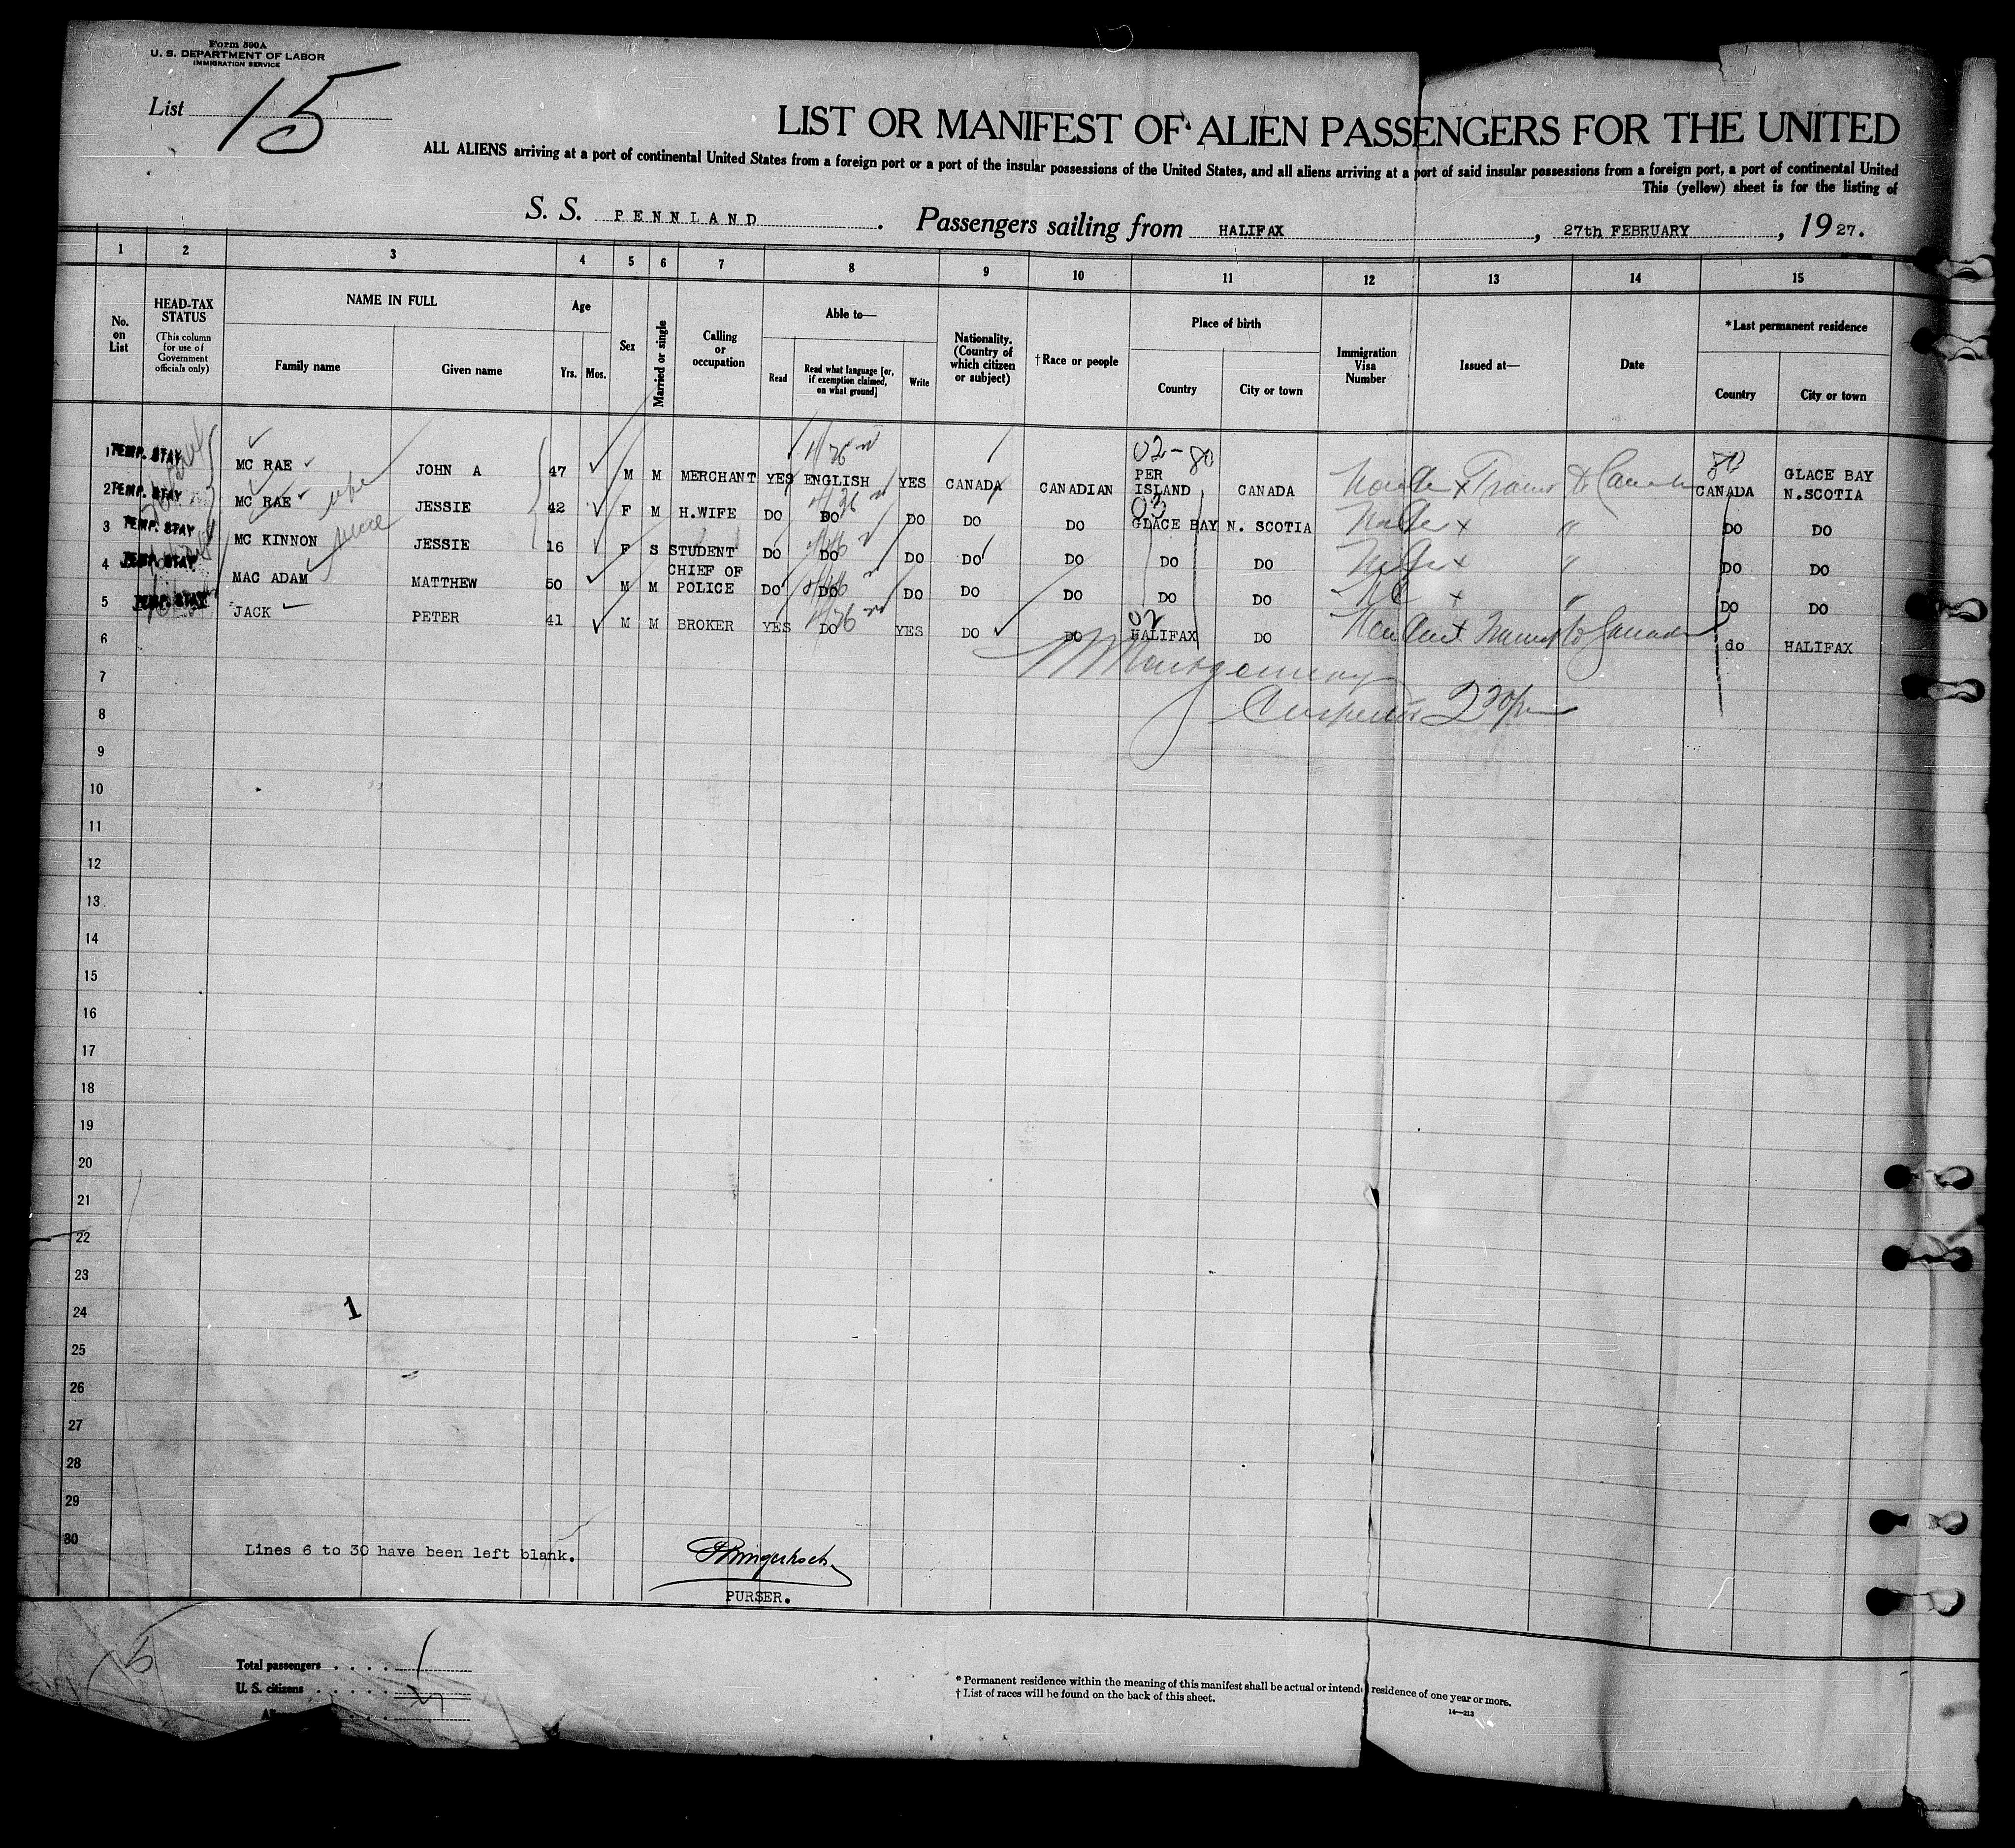 Form 500A
U. S. DEPARTMENT OF LABOR
IMMIGRATION SERVICE
List 15
LIST OR MANIFEST OF ALIEN PASSENGERS FOR THE UNITED
ALL ALIENS arriving at a port of continental United States from a foreign port or a port of the insular possessions of the United States, and all aliens arriving at a port of said insular possessions from a foreign port, a port of continental United
This (yellow) sheet is for the listing of
S. S. PENNLAND. Passengers sailing from HALIFAX, 27th FEBRUARY, 1927.
1 2 3 4 5 6 7 8 9 10 11 12 13 14 15
No. on List
HEAD-TAX STATUS
(This column for use of Government officials only)
NAME IN FULL
Family name
Given name
Age
Yrs.
Mos.
Sex
Married or single
Calling or occupation
Able to—
Read
Read what language [or, if exemption claimed, on what ground]
Write
Nationality. (Country of which citizen or subject)
†Race or people
Place of birth
Country
City or town
Immigration Visa Number
Issued at—
Date
*Last permanent residence
Country
City or town
02-80 80
1 TEMP. STAY MC RAE JOHN A 47 M M MERCHANT YES ENGLISH YES CANADA CANADIAN PER ISLAND CANADA CANADA GLACE BAY N.SCOTIA
03
2 TEMP. STAY MC RAE wife JESSIE 42 F M H.WIFE DO DO DO DO DO GLACE BAY N. SCOTIA " DO DO
3 TEMP. STAY MC KINNON niece JESSIE 16 F S STUDENT DO DO DO DO DO DO DO " DO DO
4 TEMP. STAY MAC ADAM MATTHEW 50 M M CHIEF OF POLICE DO DO DO DO DO DO DO " DO DO
02
5 TEMP. STAY JACK PETER 41 M M BROKER YES DO YES DO DO HALIFAX DO do HALIFAX
6
Montgomery
7
Inspector 2 30 pm
8
9
10
11
12
13
14
15
16
17
18
19
20
21
22
23
24 1
25
26
27
28
29
30
Lines 6 to 30 have been left blank.
PURSER.
5
Total passengers
U. S. citizens
* Permanent residence within the meaning of this manifest shall be actual or intended residence of one year or more.
† List of races will be found on the back of this sheet.
14—213